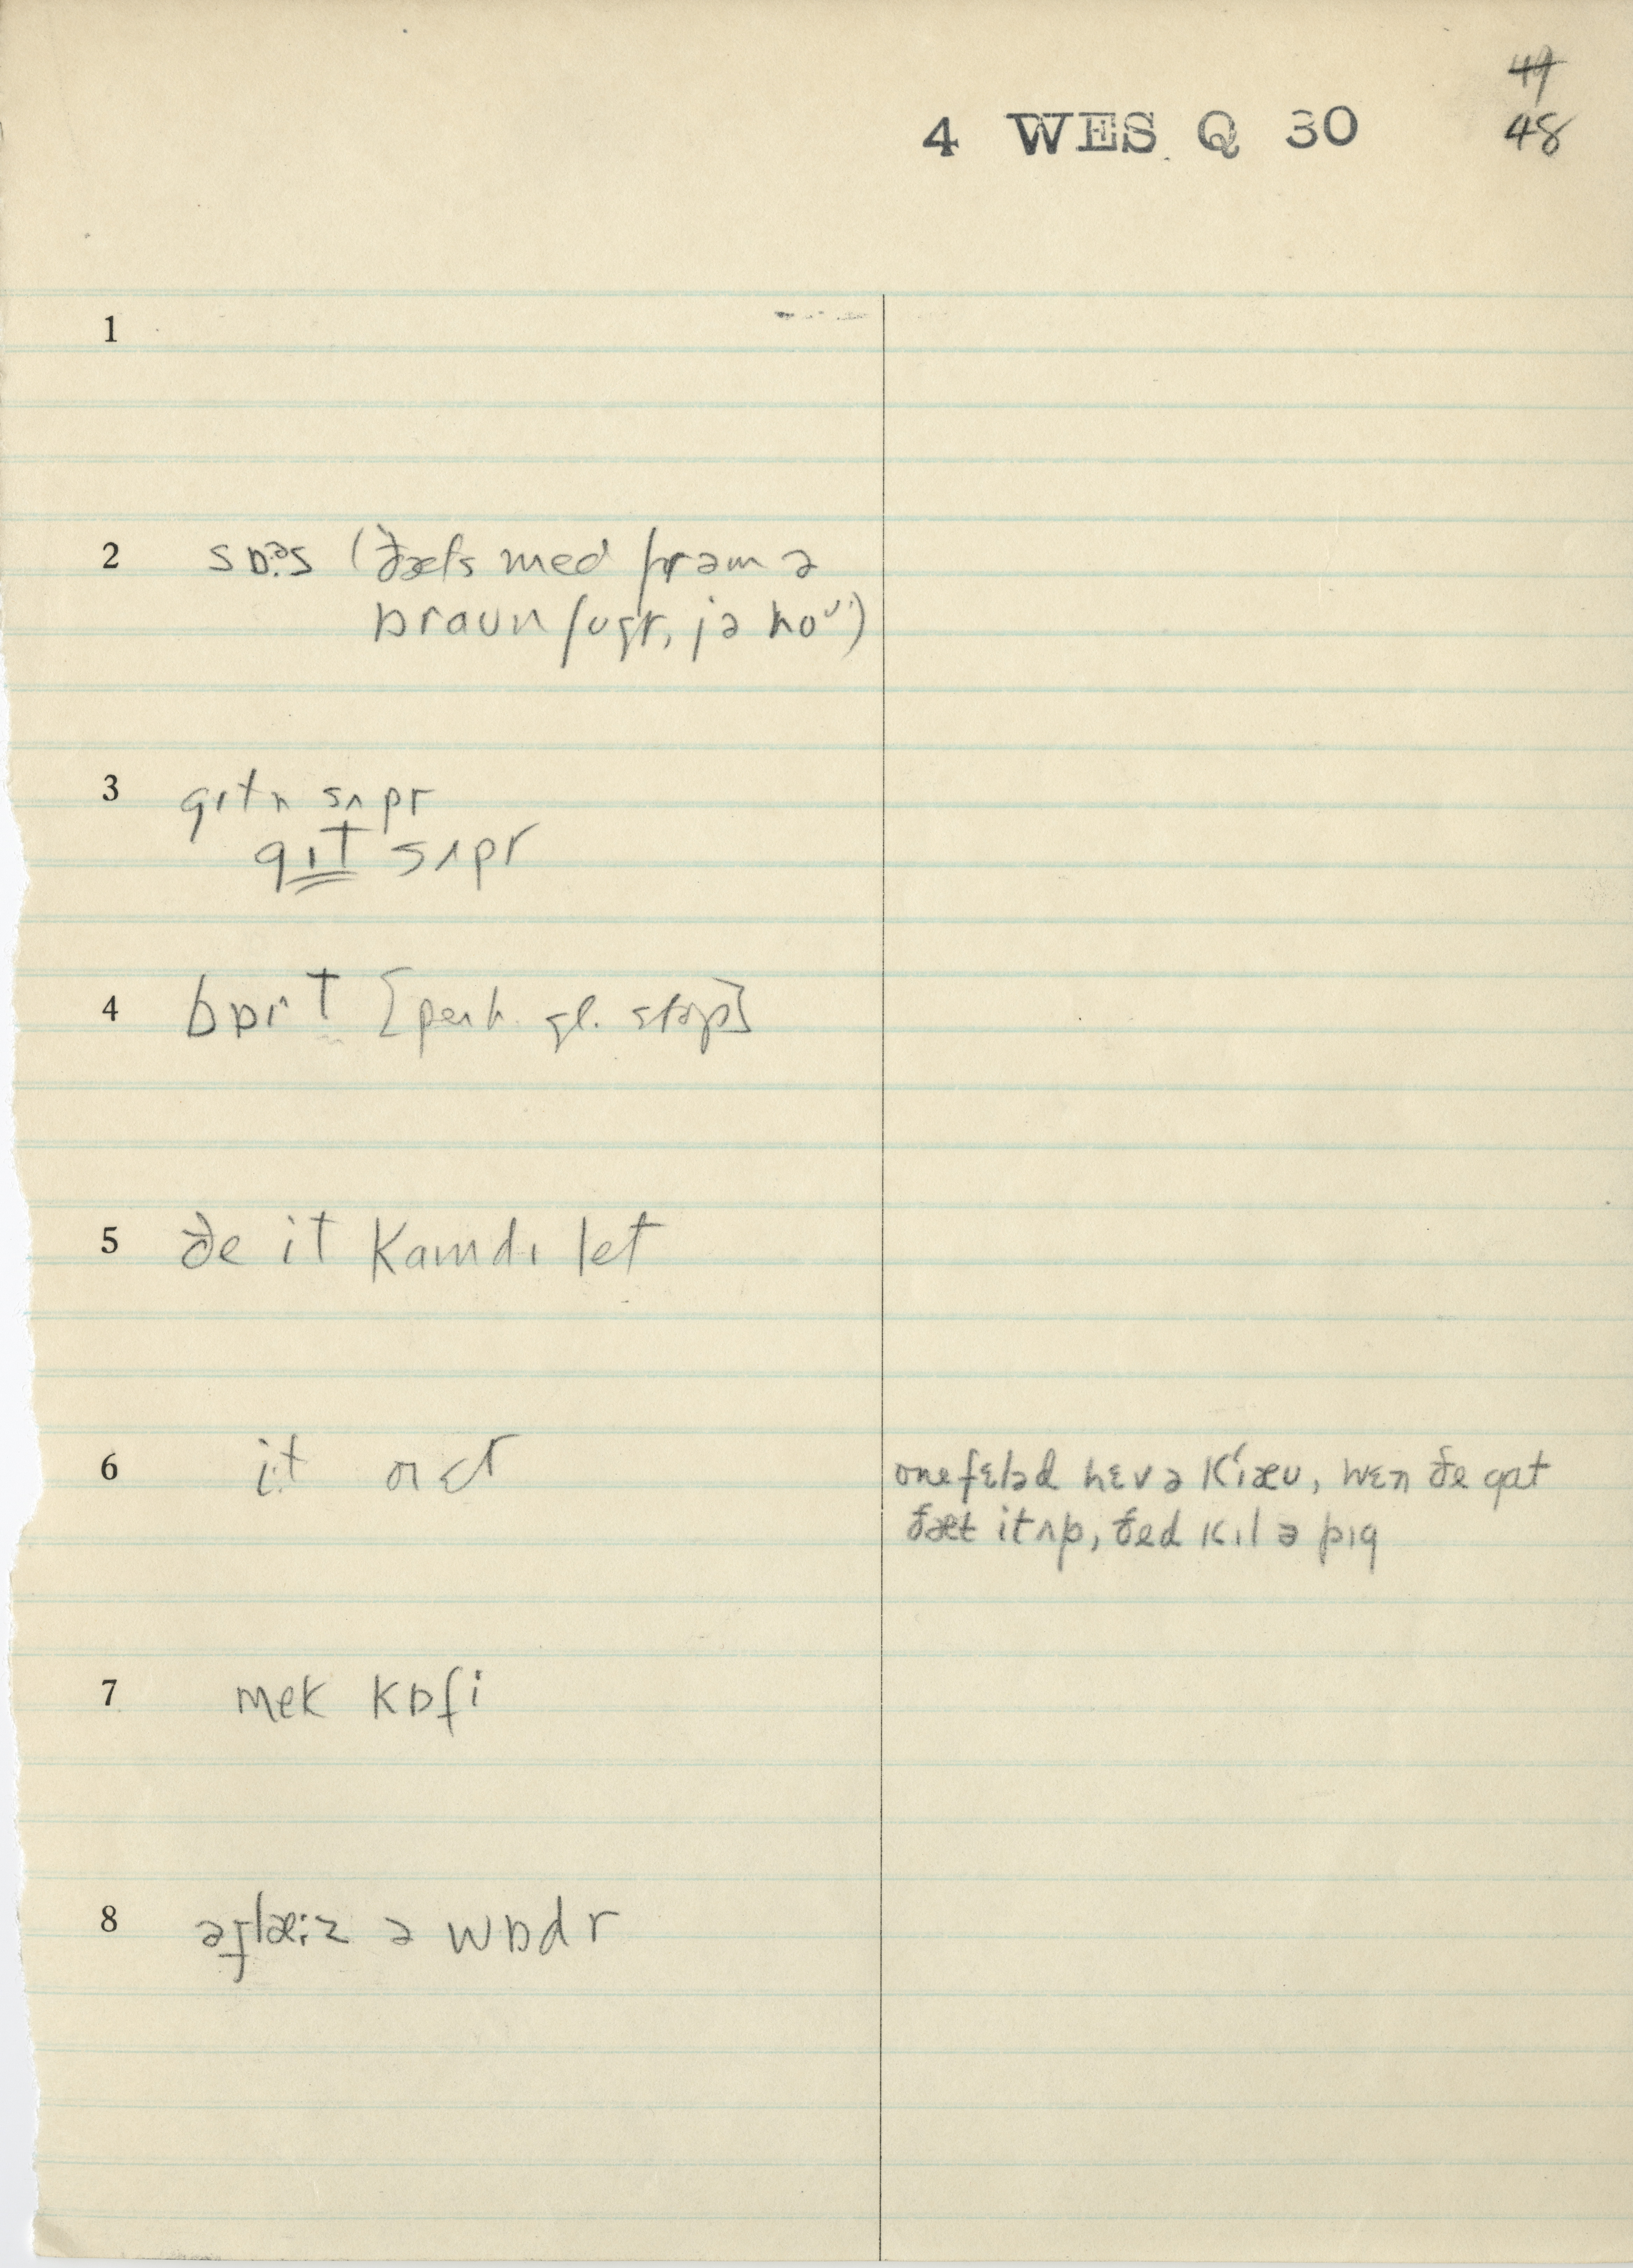 49
4 WES Q 30 48
1
2 sɒ:ᵊs (ðæts med frəm ə
braun ʃugr, jə no")
3 gɪtn sʌpr
gɪt sʌpr
4 bɒrt [perh. gl. stop]
5 ðe it kamdɪ let
6 it
one fɛləd hɛv ə kiæu, wɛn ðe gat
ðæt it ʌp, ðed kɪl ə pɪg
7 mek kɒfi
8 əglæ:z ə wɒdr